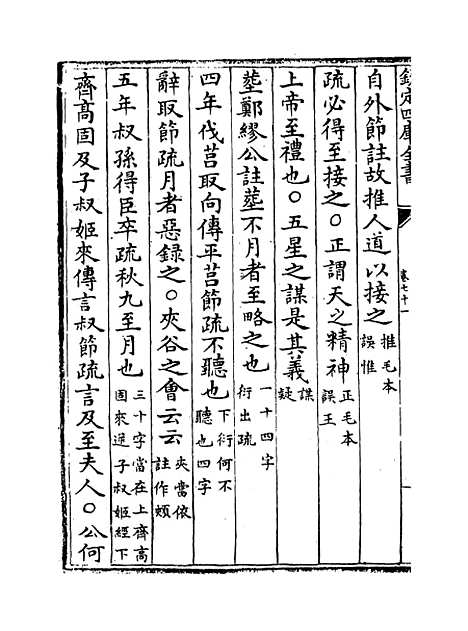 欽定四庫全書
卷七十一
自外節註故推人道以接之推毛本誤惟
疏必得至接之○正謂天之精神正毛本誤王
上帝至禮也○五星之謀是其義謀疑
塟鄭繆公註塟不月者至略之也一十四字衍出疏
四年伐莒取向傳平莒節疏不聽也下衍何不聽也四字
辭取節疏月者惡錄之○夾谷之會云云夾當依註作頰
五年叔孫得臣卒疏秋九至月也三十字當在上齊高固來逆子叔姬經下
齊高固及子叔姬來傳言叔節疏言及至夫人○公何